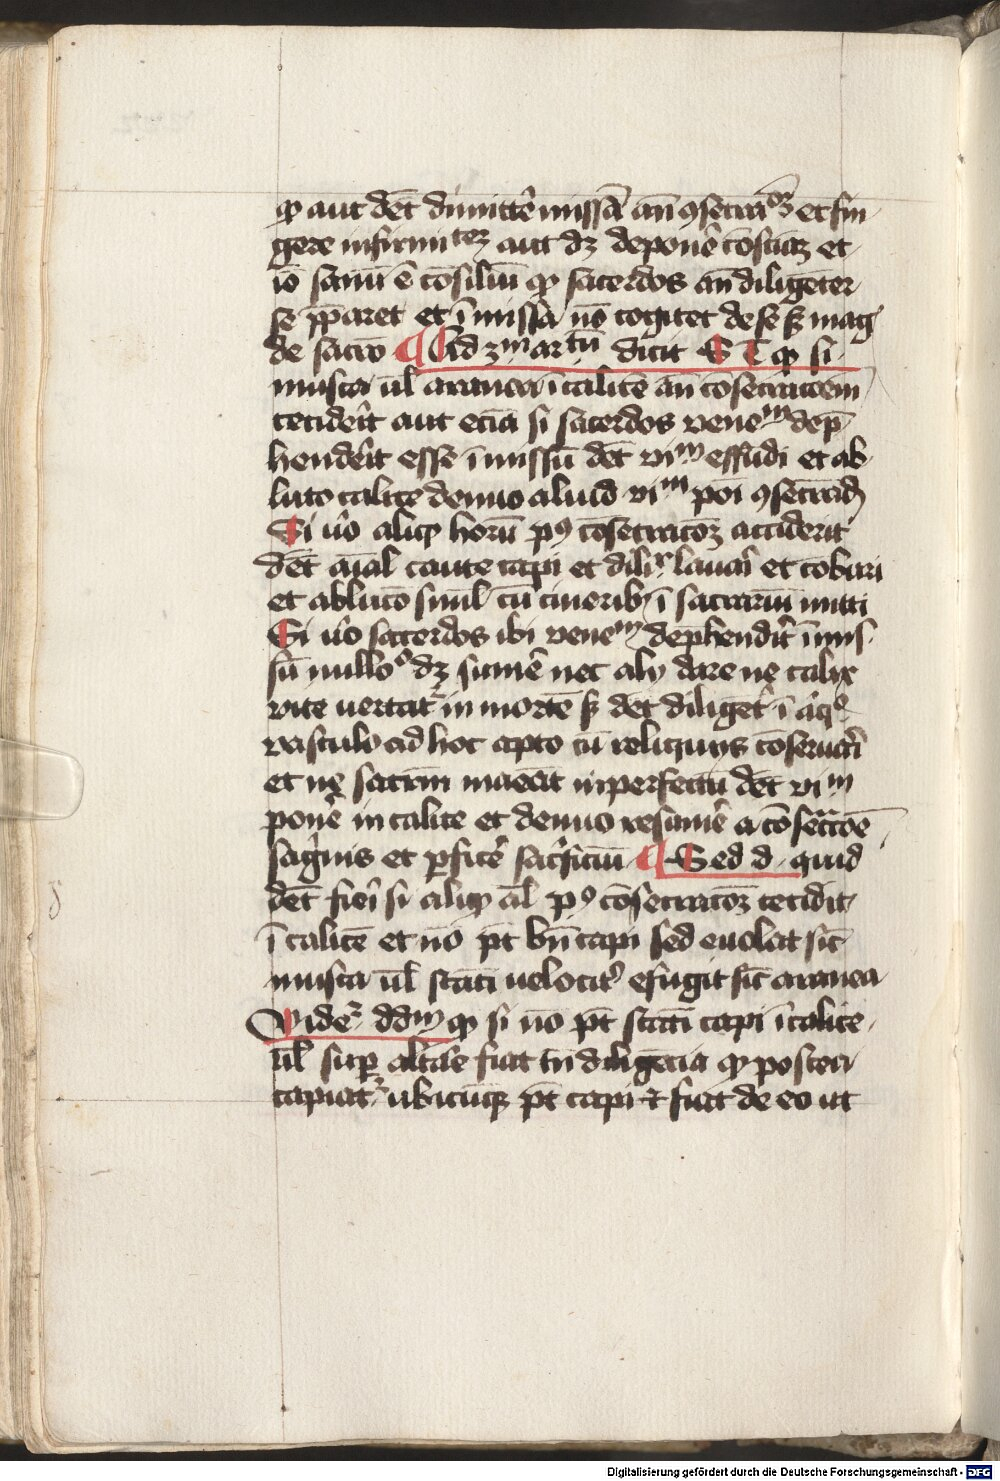 qꝫ aut dēt dimittē missā an̄ ꝯsecratōeꝫ et fin
gere infirmiteꝫ aut dꝫ deponē cōsuꝫ et
iō sanū ē cōsiliū qꝫ sacerdos an̄ diligēter
se p̄paret et ī missa nō cogitet de se sꝫ mag
de sacrō ¶ Ad ꝫm artm̄ dicit S T qꝫ si
musca ul̄ aranea ī calicē an̄ cōsecracōem
cecidēit aut eciā si sacerdos venem dep̄
hendēit esse īmissū dēt vim effūdi et ab
luto calice denuo aliud vim poī ꝯsecrād
Si ūo aliqꝫ horū pꝰ cōsecracōꝫ acciderit
dēt aīal caute capi et dilir lauaī et cōburi
et ablutō simul cū cineribꝫ ī sacrariū mitti
Si ūo sacerdos ibi venem dep̄hendīt īmis
sū nullo dꝫ sumē nec alij dare ne calix
vite uertat in mortē sꝫ dēt diligēt ī aliqo
vasculo ad hoc apto cū reliquijs cōseruaī
et ne sacrm̄ maneat inperfectū dēt vim
ponē in calice et denuo resumē a cōsecracōe
sāguis et pficē sacrificiū ¶ Sed d. quid
dēt fieī si aliqꝫ aīl pꝰ cōsecracōꝫ cecidit
ī calicē et nō pt̄ bn̄ capi sed euolat sic̄
musca ul̄ statī uelocit effugit sic̄ aranea
Vidr ddm qꝫ si nō pt̄ statī capi ī calice
ul̄ sup altāe fiat tn̄ diligēcia qꝫ postea
capiat ubicūqꝫ pt̄ capi ⁊ fiat de eo ut
Digitalisierung gefördert durch die Deutsche Forschungsgemeinschaft - DFG